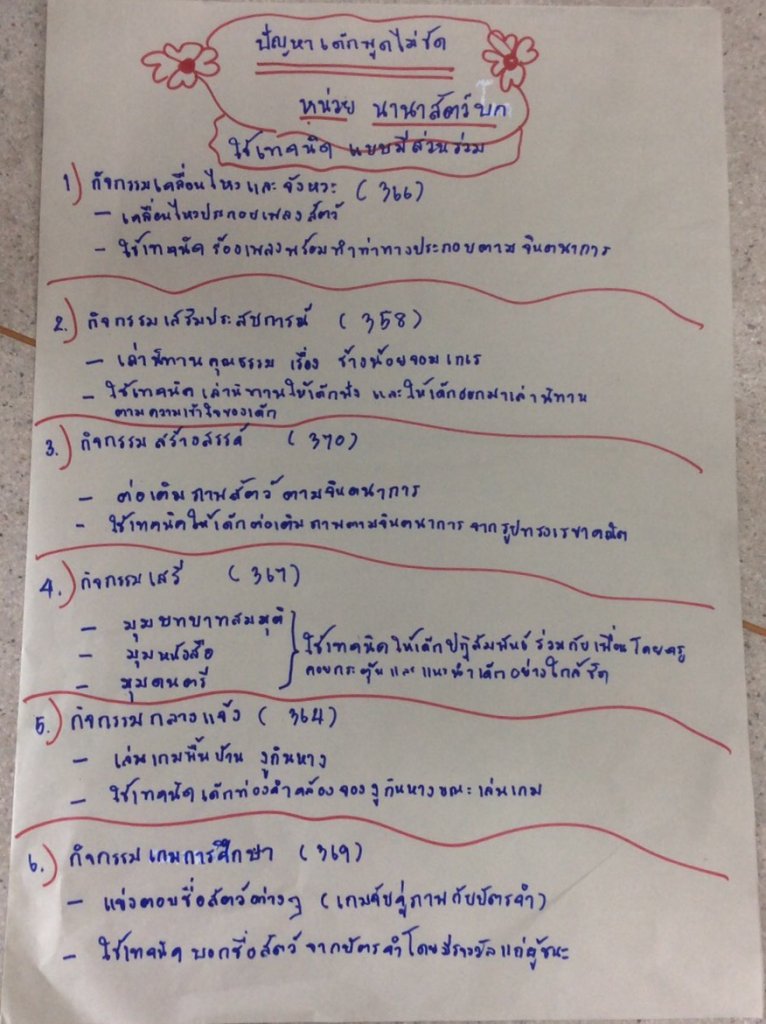 ปัญหาเด็กพูดไม่ชัด
หน่วย นานาสัตว์บก
ใช้เทคนิค แบบมีส่วนร่วม
1) กิจกรรมเคลื่อนไหวและจังหวะ (366)
- เคลื่อนไหวประกอบเพลงสัตว์
- ใช้เทคนิค ร้องเพลงพร้อมทำท่าทางประกอบตามจินตนาการ
2.) กิจกรรมเสริมประสบการณ์ (358)
- เล่านิทานคุณธรรม เรื่อง ช้างน้อยจอมเกเร
- ใช้เทคนิค เล่านิทานให้เด็กฟัง และให้เด็กออกมาเล่านิทาน
ตามความเข้าใจของเด็ก
3.) กิจกรรมสร้างสรรค์ (370)
- ต่อเติมภาพสัตว์ตามจินตนาการ
- ใช้เทคนิคให้เด็กต่อเติมภาพตามจินตนาการจากรูปทรงเรขาคณิต
4.) กิจกรรมเสรี (367)
- มุมบทบาทสมมุติ
- มุมหนังสือ
- มุมดนตรี
ใช้เทคนิคให้เด็กปฏิสัมพันธ์ร่วมกับเพื่อนโดยครู
คอยกระตุ้นและแนะนำเด็กอย่างใกล้ชิด
5.) กิจกรรมกลางแจ้ง (364)
- เล่นเกมพื้นบ้าน งูกินหาง
- ใช้เทคนิคเด็กท่องคำคล้องจองงูกินหางขณะเล่นเกม
6.) กิจกรรมเกมการศึกษา (369)
- แข่งตอบชื่อสัตว์ต่างๆ (เกมจับคู่ภาพกับบัตรคำ)
- ใช้เทคนิค บอกชื่อสัตว์จากบัตรคำโดยมีรางวัลแก่ผู้ชนะ